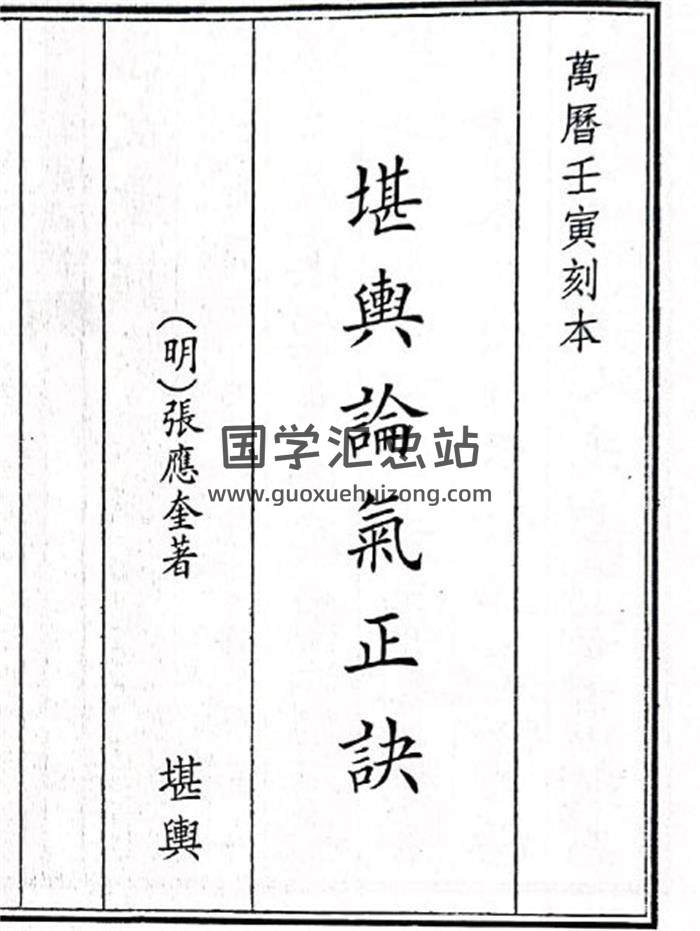 萬曆壬寅刻本
堪輿論氣正訣
（明）張應奎著
堪輿
国学汇总站
www.guoxuehuizong.com